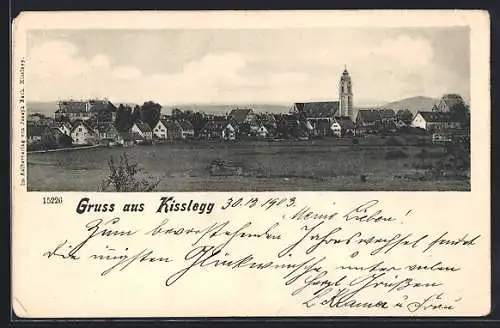 Im Selbstverlag von Joseph Rack, Kisslegg.
15226 Gruss aus Kisslegg 30.12.1903.
Meine Lieben!
Zum bevorstehenden Jahreswechsel sendet
die innigsten Glückwünsche unter vielen
herzl. Grüßen
u. Frau